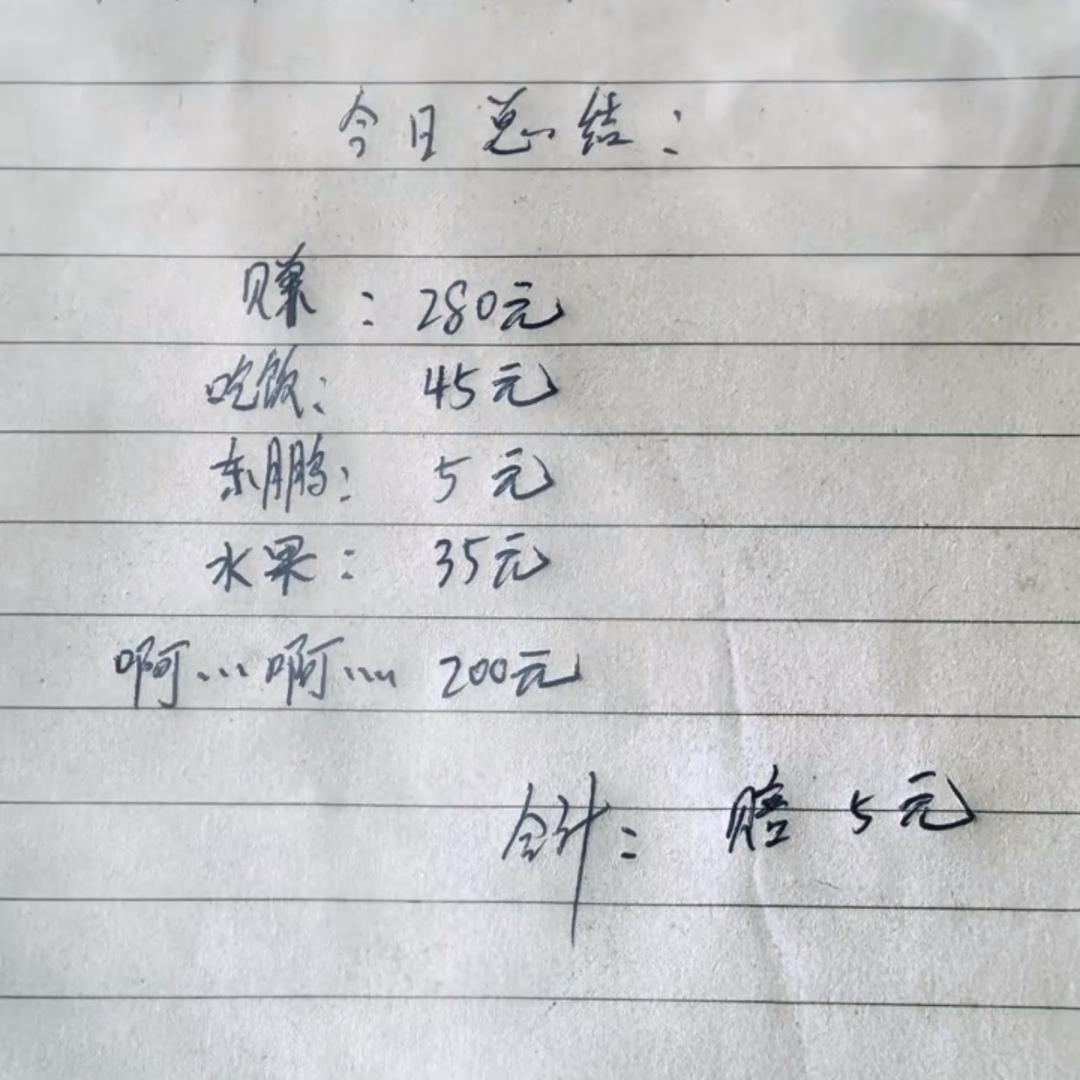 今日总结：
赚：280元
吃饭：45元
东鹏：5元
水果：35元
啊...啊.... 200元
合计：赔5元